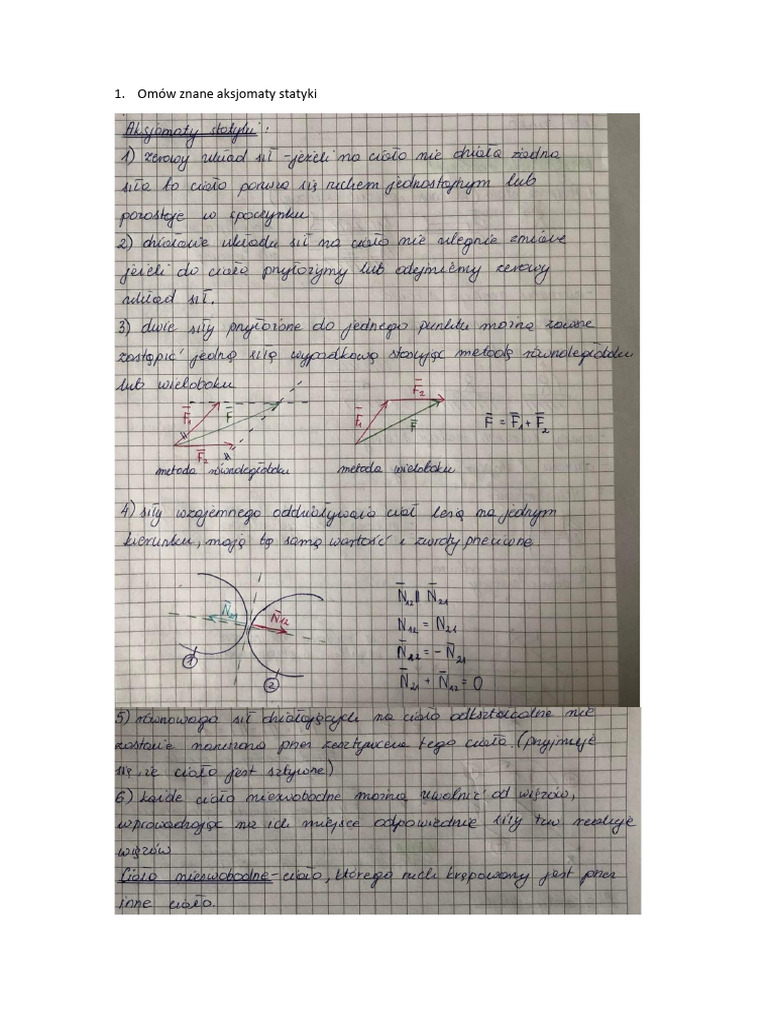 1. Omów znane aksjomaty statyki
Aksjomaty statyki:
1) zerowy układ sił - jeżeli na ciało nie działa żadna
siła to ciało porusza się ruchem jednostajnym lub
pozostaje w spoczynku
2) działanie układu sił na ciało nie ulegnie zmianie
jeżeli do ciała przyłożymy lub odejmiemy zerowy
układ sił.
3) dwie siły przyłożone do jednego punktu można zawsze
zastąpić jedną siłą wypadkową stosując metodę równoległoboku
lub wieloboku
F̄₁ F̄ F̄₂
F̄₂ F̄₁ F̄
F̄ = F̄₁ + F̄₂
metoda równoległoboku metoda wieloboku
4) siły wzajemnego oddziaływania ciał leżą na jednym
kierunku, mają tę samą wartość i zwroty przeciwne
N̄₂₁ N̄₁₂
1
2
N̄₁₂ || N̄₂₁
N₁₂ = N₂₁
N̄₁₂ = - N̄₂₁
N̄₂₁ + N̄₁₂ = 0
5) równowaga sił działających na ciało odkształcalne nie
zostanie naruszona przez zesztywnienie tego ciała. (przyjmuje
się, że ciało jest sztywne)
6) każde ciało nieswobodne można uwolnić od więzów,
wprowadzając na ich miejsce odpowiednie siły tzw. reakcje
więzów
Ciało nieswobodne - ciało, którego ruch krępowany jest przez
inne ciało.